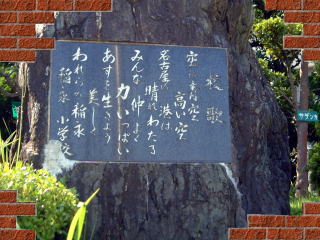 校歌
空は青空
高い空
名古屋の港は
晴れわたる
みんな仲よく
力いっぱい
あすに生きよう
美しく
われらの稲永
稲永小学校
サザンカ